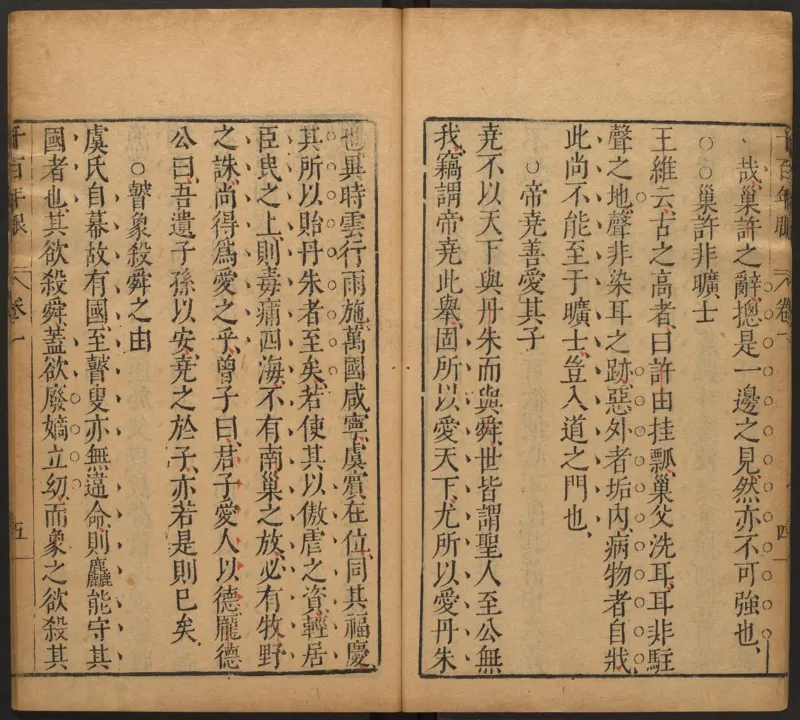 哉、巢許之辭、摠是一邊之見、然亦不可強也、
○○巢許非曠士
王維云、古之高者、曰許由挂瓢、巢父洗耳、耳非駐
聲之地、聲非染耳之跡、惡外者垢內、病物者自戕、
此尚不能至于曠士、豈入道之門也、
○帝堯善愛其子
堯不以天下與丹朱而與舜、世皆謂聖人至公無
我、竊謂帝堯此舉、固所以愛天下、尤所以愛丹朱
千百年眼
卷一
四
也、異時雲行雨施、萬國咸寧、虞賓在位、同其福慶、
其所以貽丹朱者至矣、若使其以傲虐之資、輕居
臣民之上、則毒痡四海、不有南巢之放、必有牧野
之誅、尚得爲愛之乎、曾子曰、君子愛人以德、龐德
公曰、吾遺子孫以安、堯之於子、亦若是則已矣、
○瞽象殺舜之由
虞氏自幕故有國、至瞽叟亦無違命、則麤能守其
國者也、其欲殺舜、蓋欲廢嫡立幼、而象之欲殺其
千百年眼
卷一
五